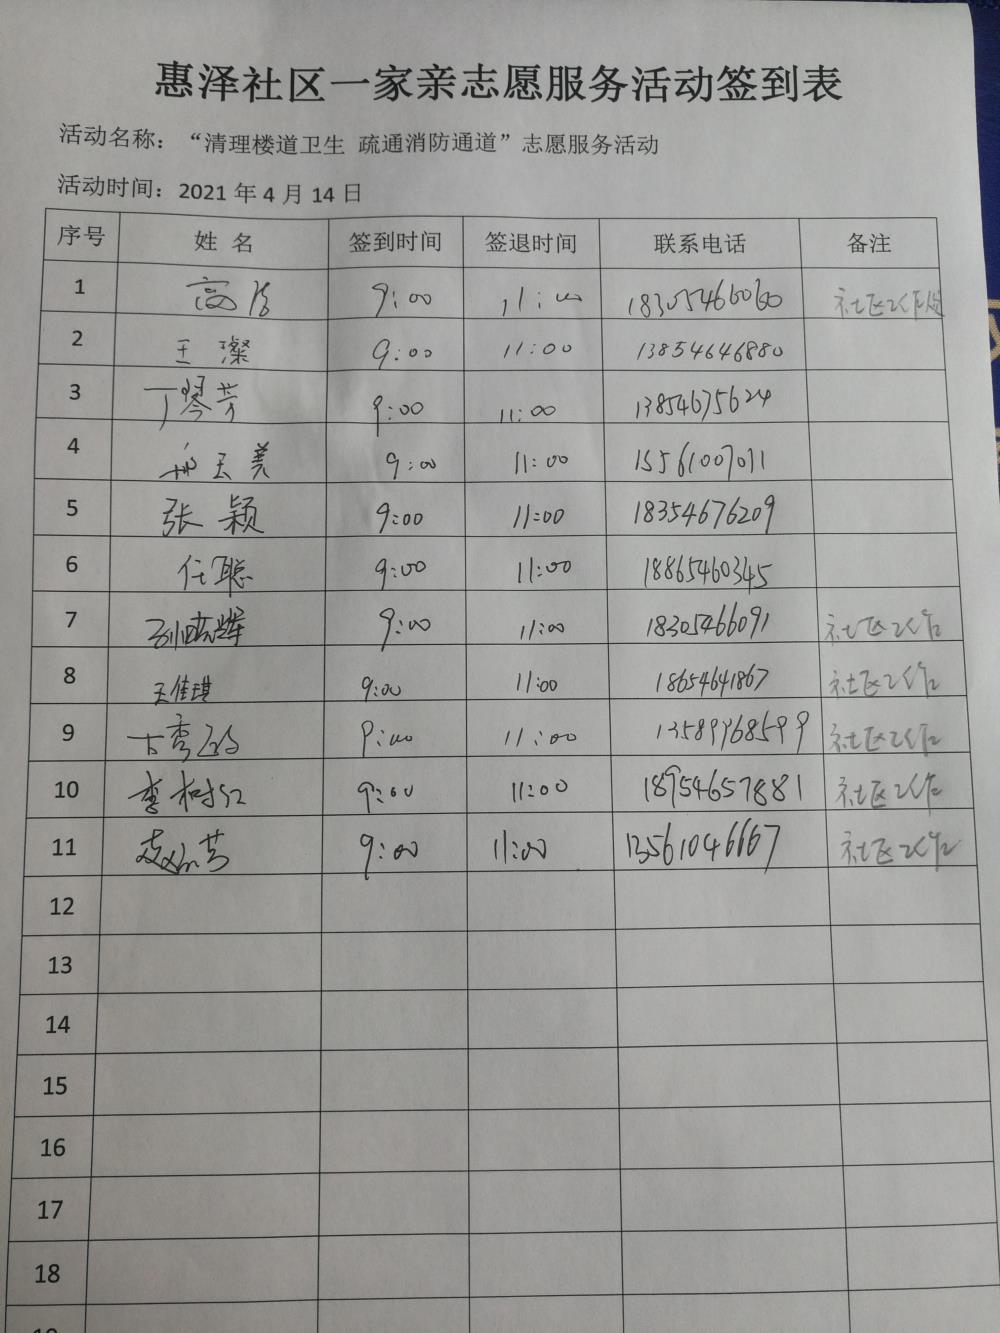 惠泽社区一家亲志愿服务活动签到表
活动名称：“清理楼道卫生 疏通消防通道”志愿服务活动
活动时间：2021 年 4 月 14 日
序号 姓 名 签到时间 签退时间 联系电话 备注
1 高 9:00 11:00 18305466060 社区工作
2 王 璨 9:00 11:00 13854646880
3 丁琴芳 9:00 11:00 13854675624
4 玉美 9:00 11:00 15561007011
5 张 颖 9:00 11:00 18354676209
6 任聪 9:00 11:00 18865460345
7 孙晓辉 9:00 11:00 18305466091 社区工作
8 王佳琪 9:00 11:00 18654641867 社区工作
9 9:00 11:00 13589968599 社区工作
10 李树红 9:00 11:00 18954657881 社区工作
11 9:00 11:00 13561046667 社区工作
12
13
14
15
16
17
18